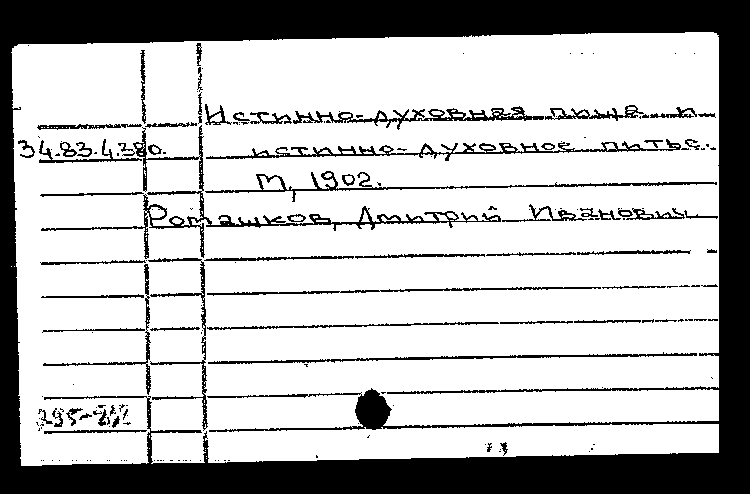 Истинно-духовная пища и
34.83.4.380. истинно-духовное питье.
М, 1902.
Ромашков, Дмитрий Иванович